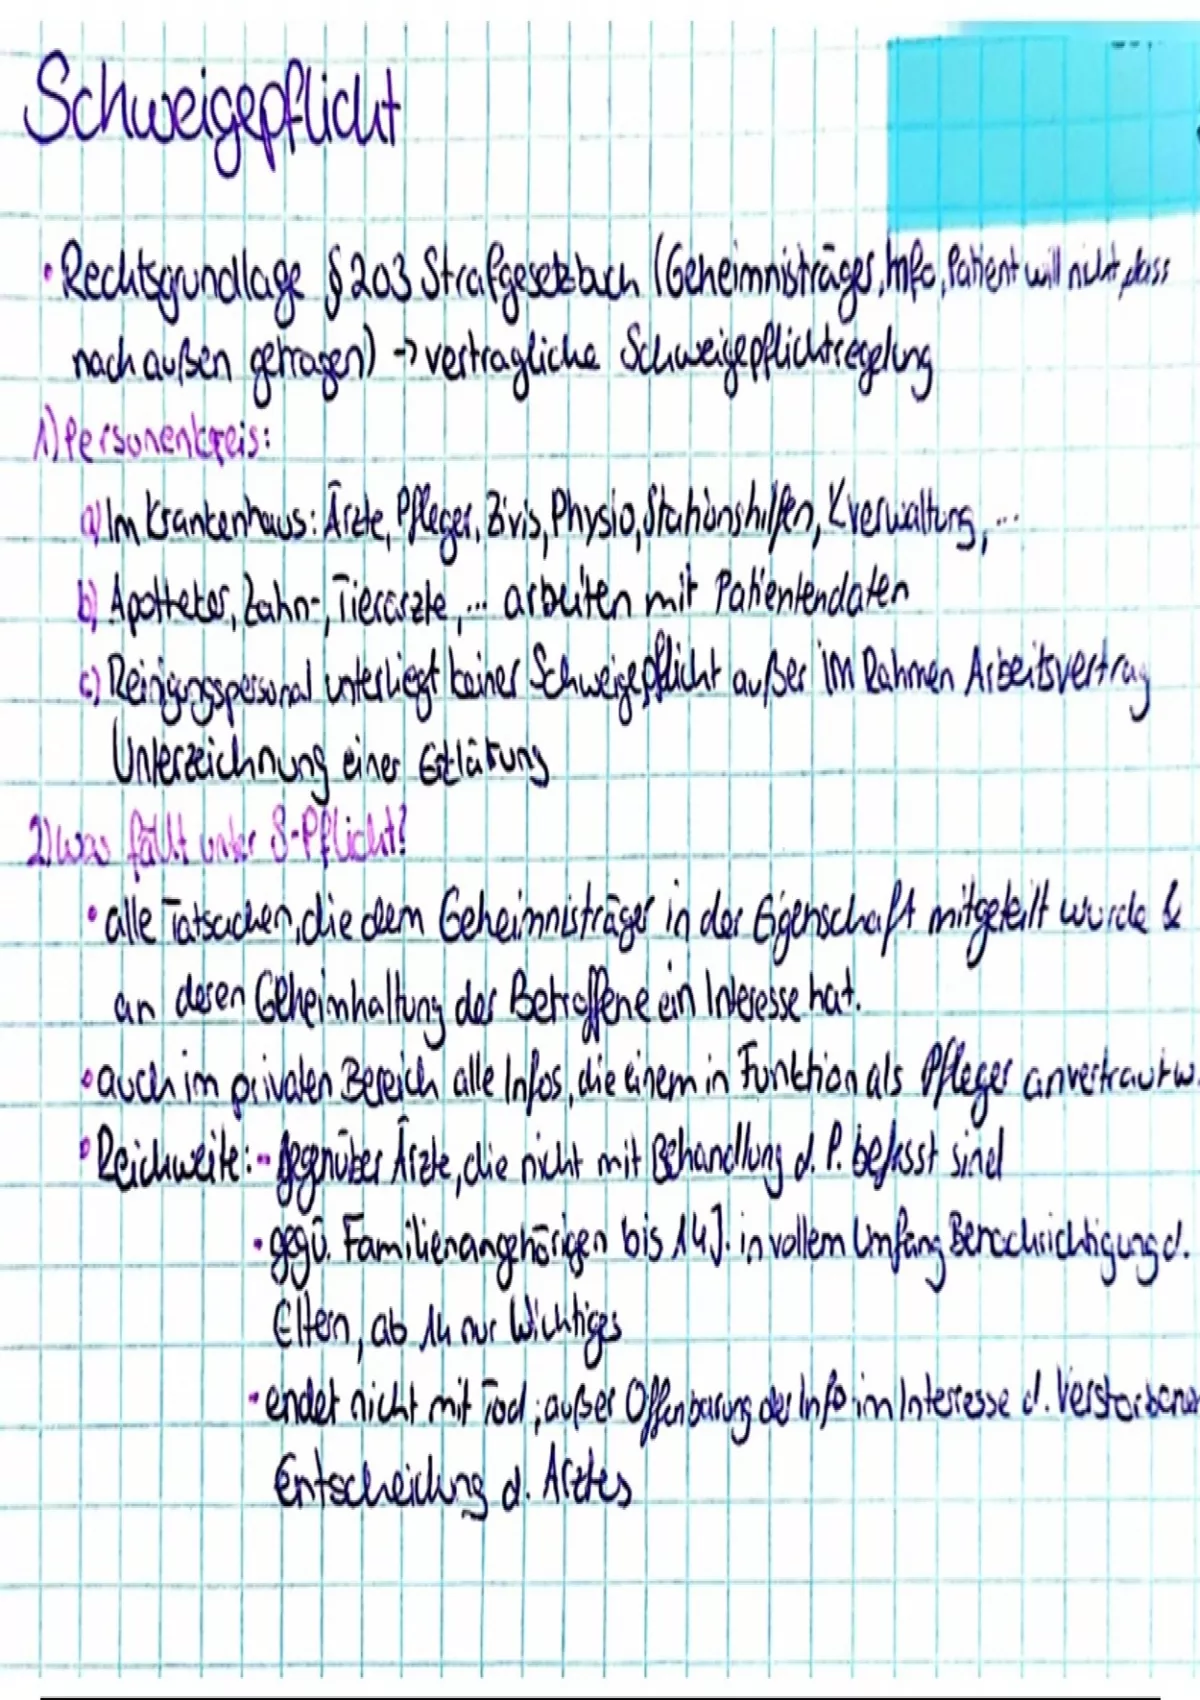 Schweigepflicht
• Rechtsgrundlage § 203 Strafgesetzbuch (Geheimnisträger, Info, Patient will nicht dass
nach außen getragen) → vertragliche Schweigepflichtregelung
1) Personenkreis:
a) Im Krankenhaus: Ärzte, Pfleger, Zivis, Physio, Stationshilfen, Kverwaltung, ...
b) Apotheker, Zahn-, Tierärzte, ... arbeiten mit Patientendaten
c) Reinigungspersonal unterliegt keiner Schweigepflicht außer im Rahmen Arbeitsvertrag
Unterzeichnung einer Erklärung
2) Was fällt unter S-Pflicht?
• alle Tatsachen, die dem Geheimnisträger in der Eigenschaft mitgeteilt wurde &
an deren Geheimhaltung der Betroffene ein Interesse hat.
• auch im privaten Bereich alle Infos, die einem in Funktion als Pfleger anvertraut w.
• Reichweite: - gegenüber Ärzte, die nicht mit Behandlung d. P. befasst sind
- ggü. Familienangehörigen bis 14 J. in vollem Umfang Benachrichtigung d.
Eltern, ab 14 nur Wichtiges
- endet nicht mit Tod; außer Offenbarung der Info im Interesse d. Verstorbenen
Entscheidung d. Arztes